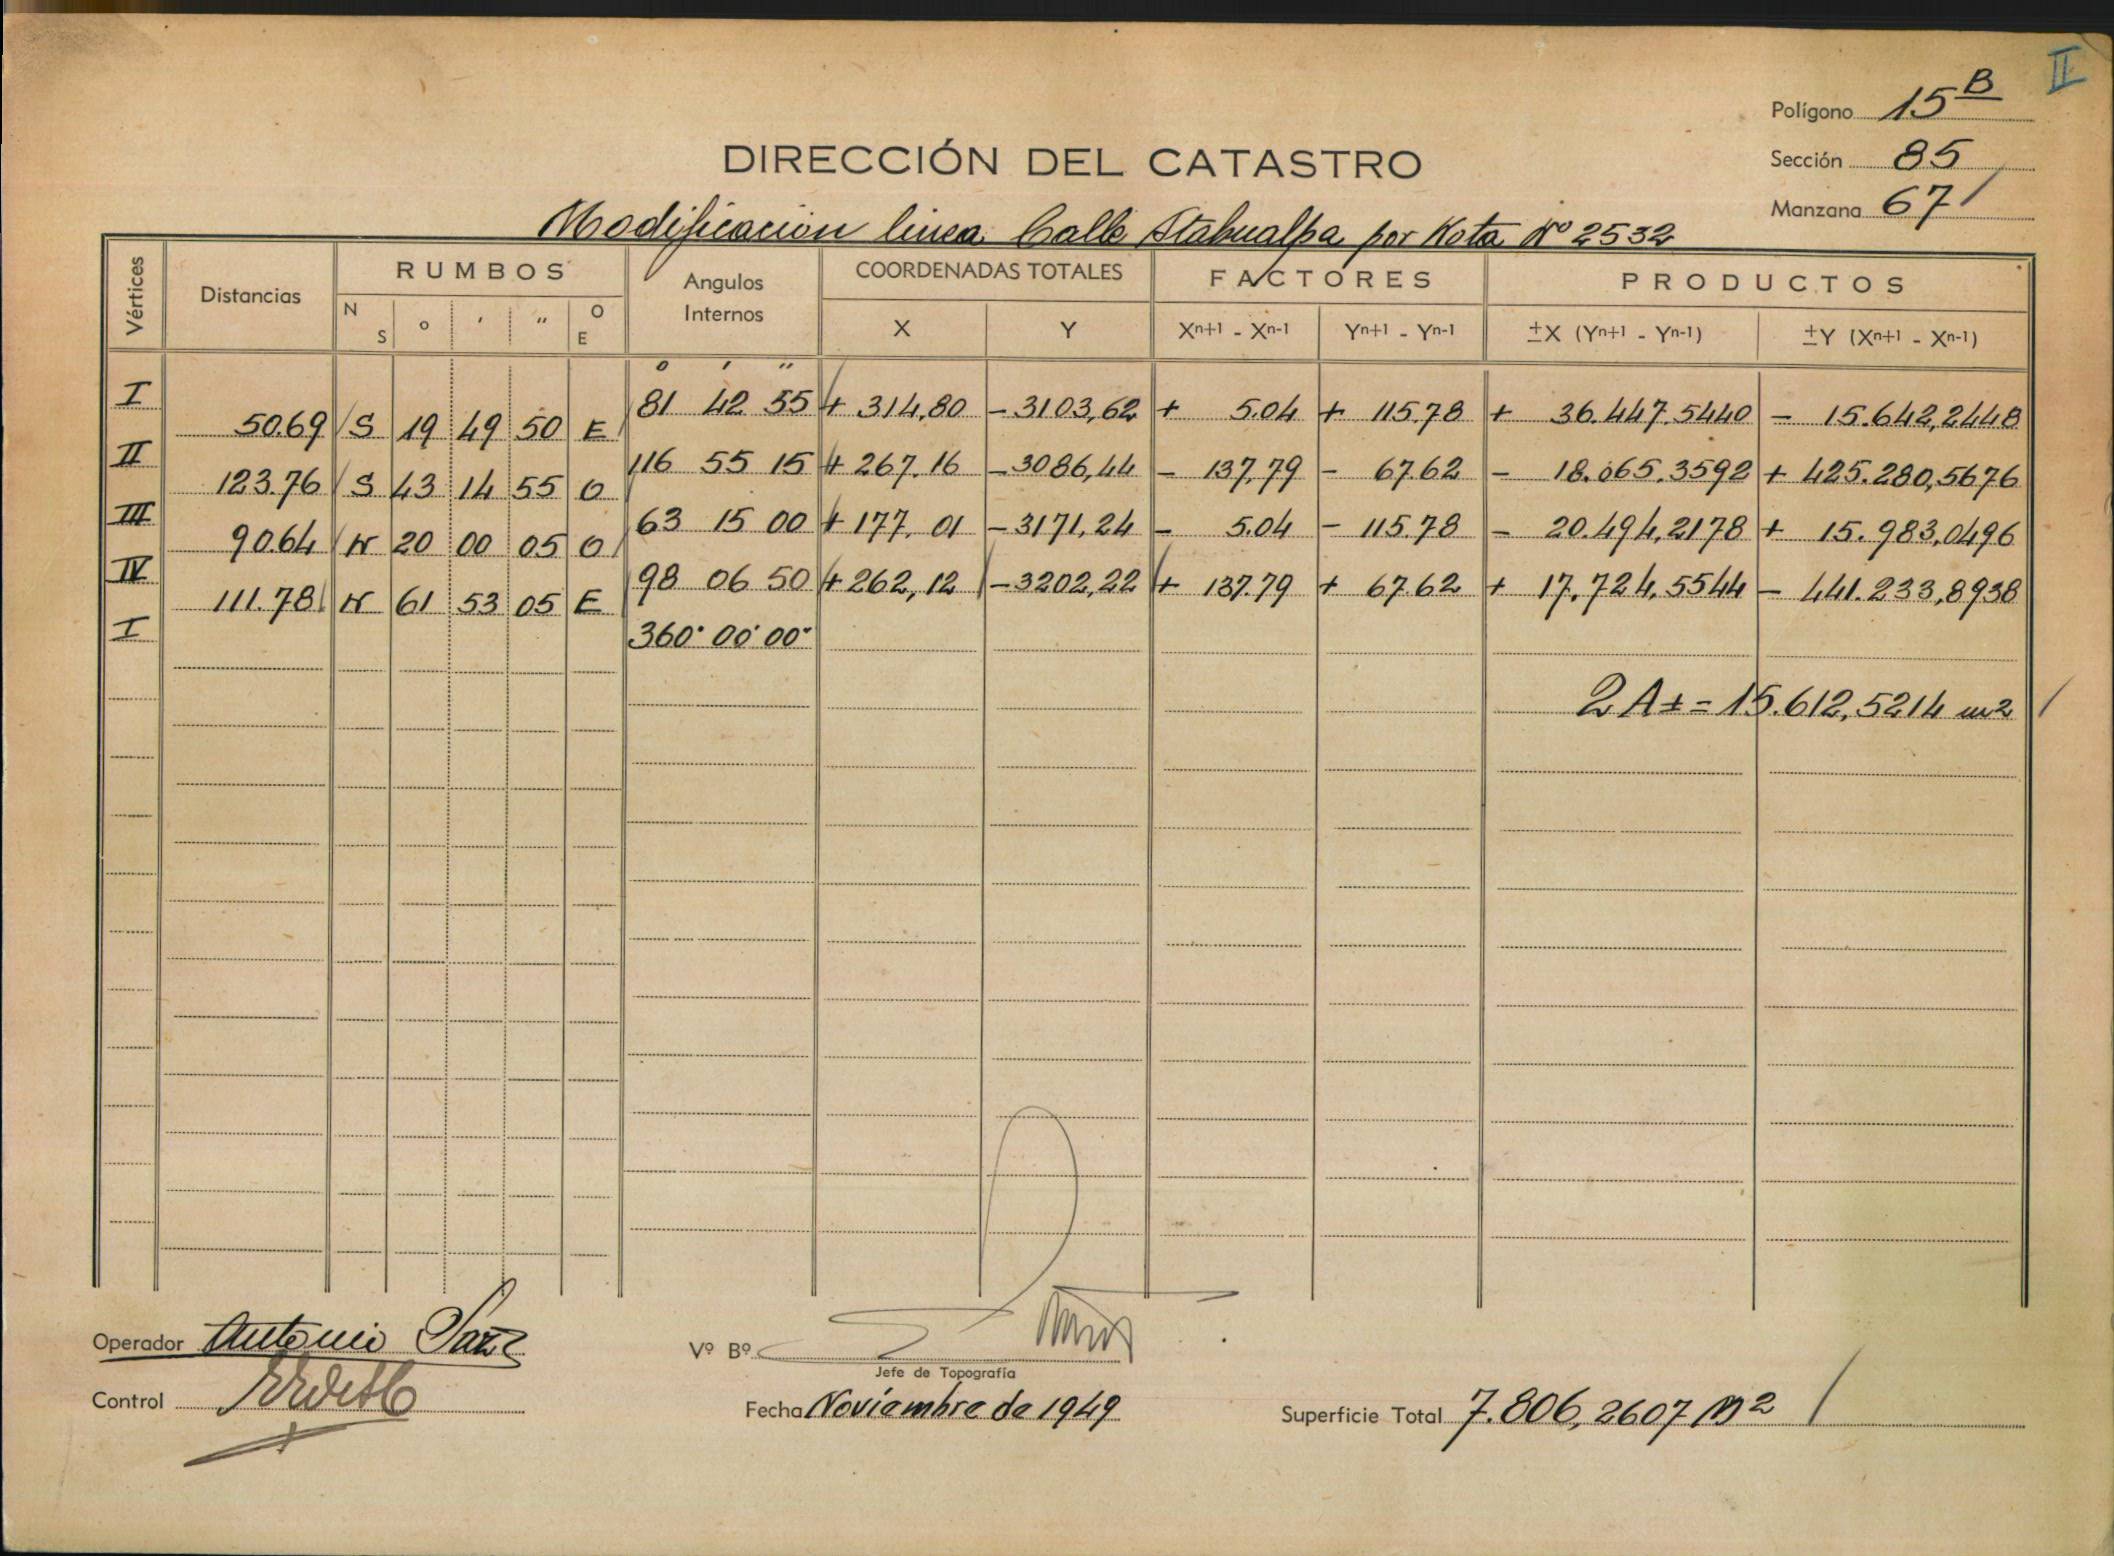 II
Polígono 15 B
DIRECCIÓN DEL CATASTRO
Sección 85
Manzana 67
Modificacion linea Calle Atahualpa por Nota Nº 2532
Vértices Distancias RUMBOS Angulos Internos COORDENADAS TOTALES FACTORES PRODUCTOS
N S o ' " O E X Y Xn+1 - Xn-1 Yn+1 - Yn-1 ±X (Yn+1 - Yn-1) ±Y (Xn+1 - Xn-1)
o ' "
I 81 42 55 + 314,80 - 3103,62 + 5.04 + 115.78 + 36.447.5440 - 15.642,2448
50.69 S 19 49 50 E
II 116 55 15 + 267.16 - 3086,44 - 137,79 - 67.62 - 18.065.3592 + 425.280,5676
123.76 S 43 14 55 O
III 63 15 00 + 177.01 - 3171,24 - 5.04 - 115.78 - 20.494,2178 + 15.983,0496
90.64 N 20 00 05 O
IV 98 06 50 + 262,12 - 3202,22 + 137.79 + 67.62 + 17.724.5544 - 441.233,8938
111.78 N 61 53 05 E
I 360° 00' 00"
2 A ± = 15.612,5214 m2
Operador Antonio
Vº Bº
Jefe de Topografía
Control
Fecha Noviembre de 1949
Superficie Total 7.806,2607 M2